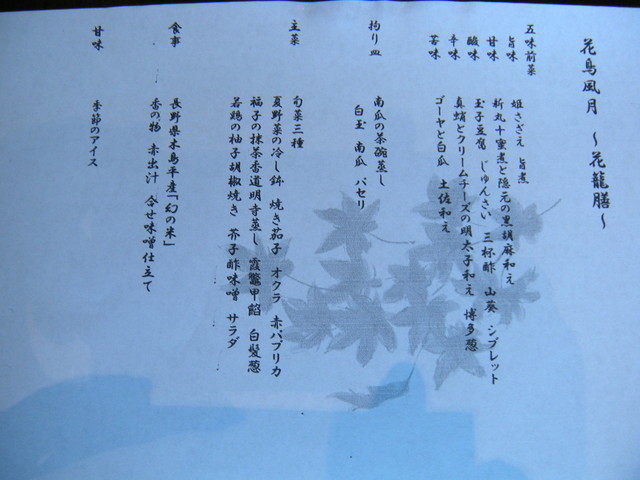 花鳥風月 ～花籠膳～
五味前菜
旨味 姫さざえ 旨煮
甘味 新丸十蜜煮と隠元の黒胡麻和え
酸味 玉子豆腐 じゅんさい 三杯酢 山葵 シブレット
辛味 真蛸とクリームチーズの明太子和え 博多葱
苦味 ゴーヤと白瓜 土佐和え
拘り皿
南瓜の茶碗蒸し
白玉 南瓜 パセリ
主菜
旬菜三種
夏野菜の冷し鉢 焼き茄子 オクラ 赤パプリカ
福子の抹茶香道明寺蒸し 霞鼈甲餡 白髪葱
若鶏の柚子胡椒焼き 芥子酢味噌 サラダ
食事
長野県木島平産「幻の米」
香の物 赤出汁 合せ味噌仕立て
甘味
季節のアイス